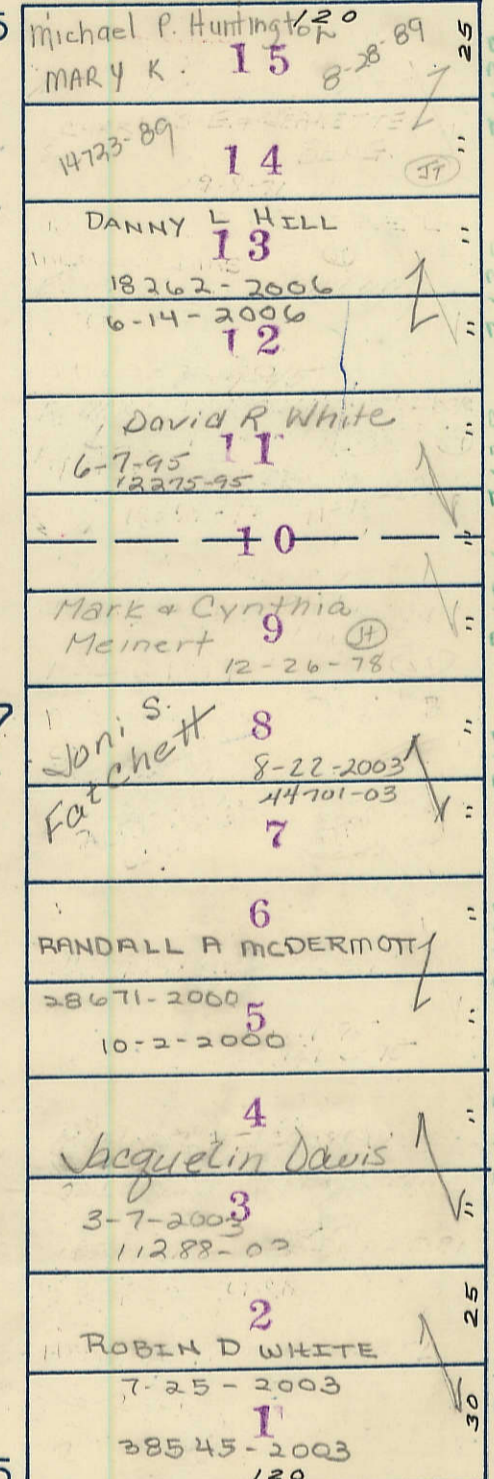 Michael P. Huntington 120
MARY K. 15 8-28-89 25
14723-89 14 JT "
DANNY L HILL
13 "
18262-2006
6-14-2006
12 "
David R White
11 "
6-7-95
12275-95
10 "
Mark & Cynthia
9 "
Meinert JT
12-26-78
Joni S. 8 "
Fatchett 8-22-2003
44701-03 "
7
6 "
RANDALL A McDERMOTT
28671-2000
5 "
10-2-2000
4 "
Jacquelin Davis
3 "
3-7-2003
11288-03
2 25
ROBIN D WHITE
7-25-2003
1 30
38545-2003
120